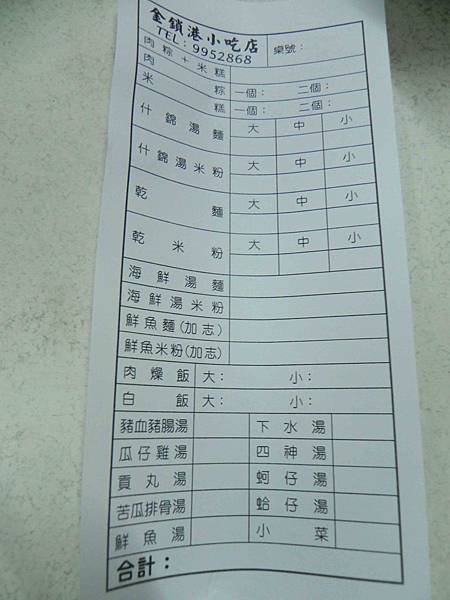 金鎖港小吃店
TEL：9952868
桌號：
肉粽＋米糕
肉粽 一個： 二個：
米糕 一個： 二個：
什錦湯麵 大 中 小
什錦湯米粉 大 中 小
乾麵 大 中 小
乾米粉 大 中 小
海鮮湯麵
海鮮湯米粉
鮮魚麵(加志)
鮮魚米粉(加志)
肉燥飯 大： 小：
白飯 大： 小：
豬血豬腸湯 下水湯
瓜仔雞湯 四神湯
貢丸湯 蚵仔湯
苦瓜排骨湯 蛤仔湯
鮮魚湯 小菜
合計：